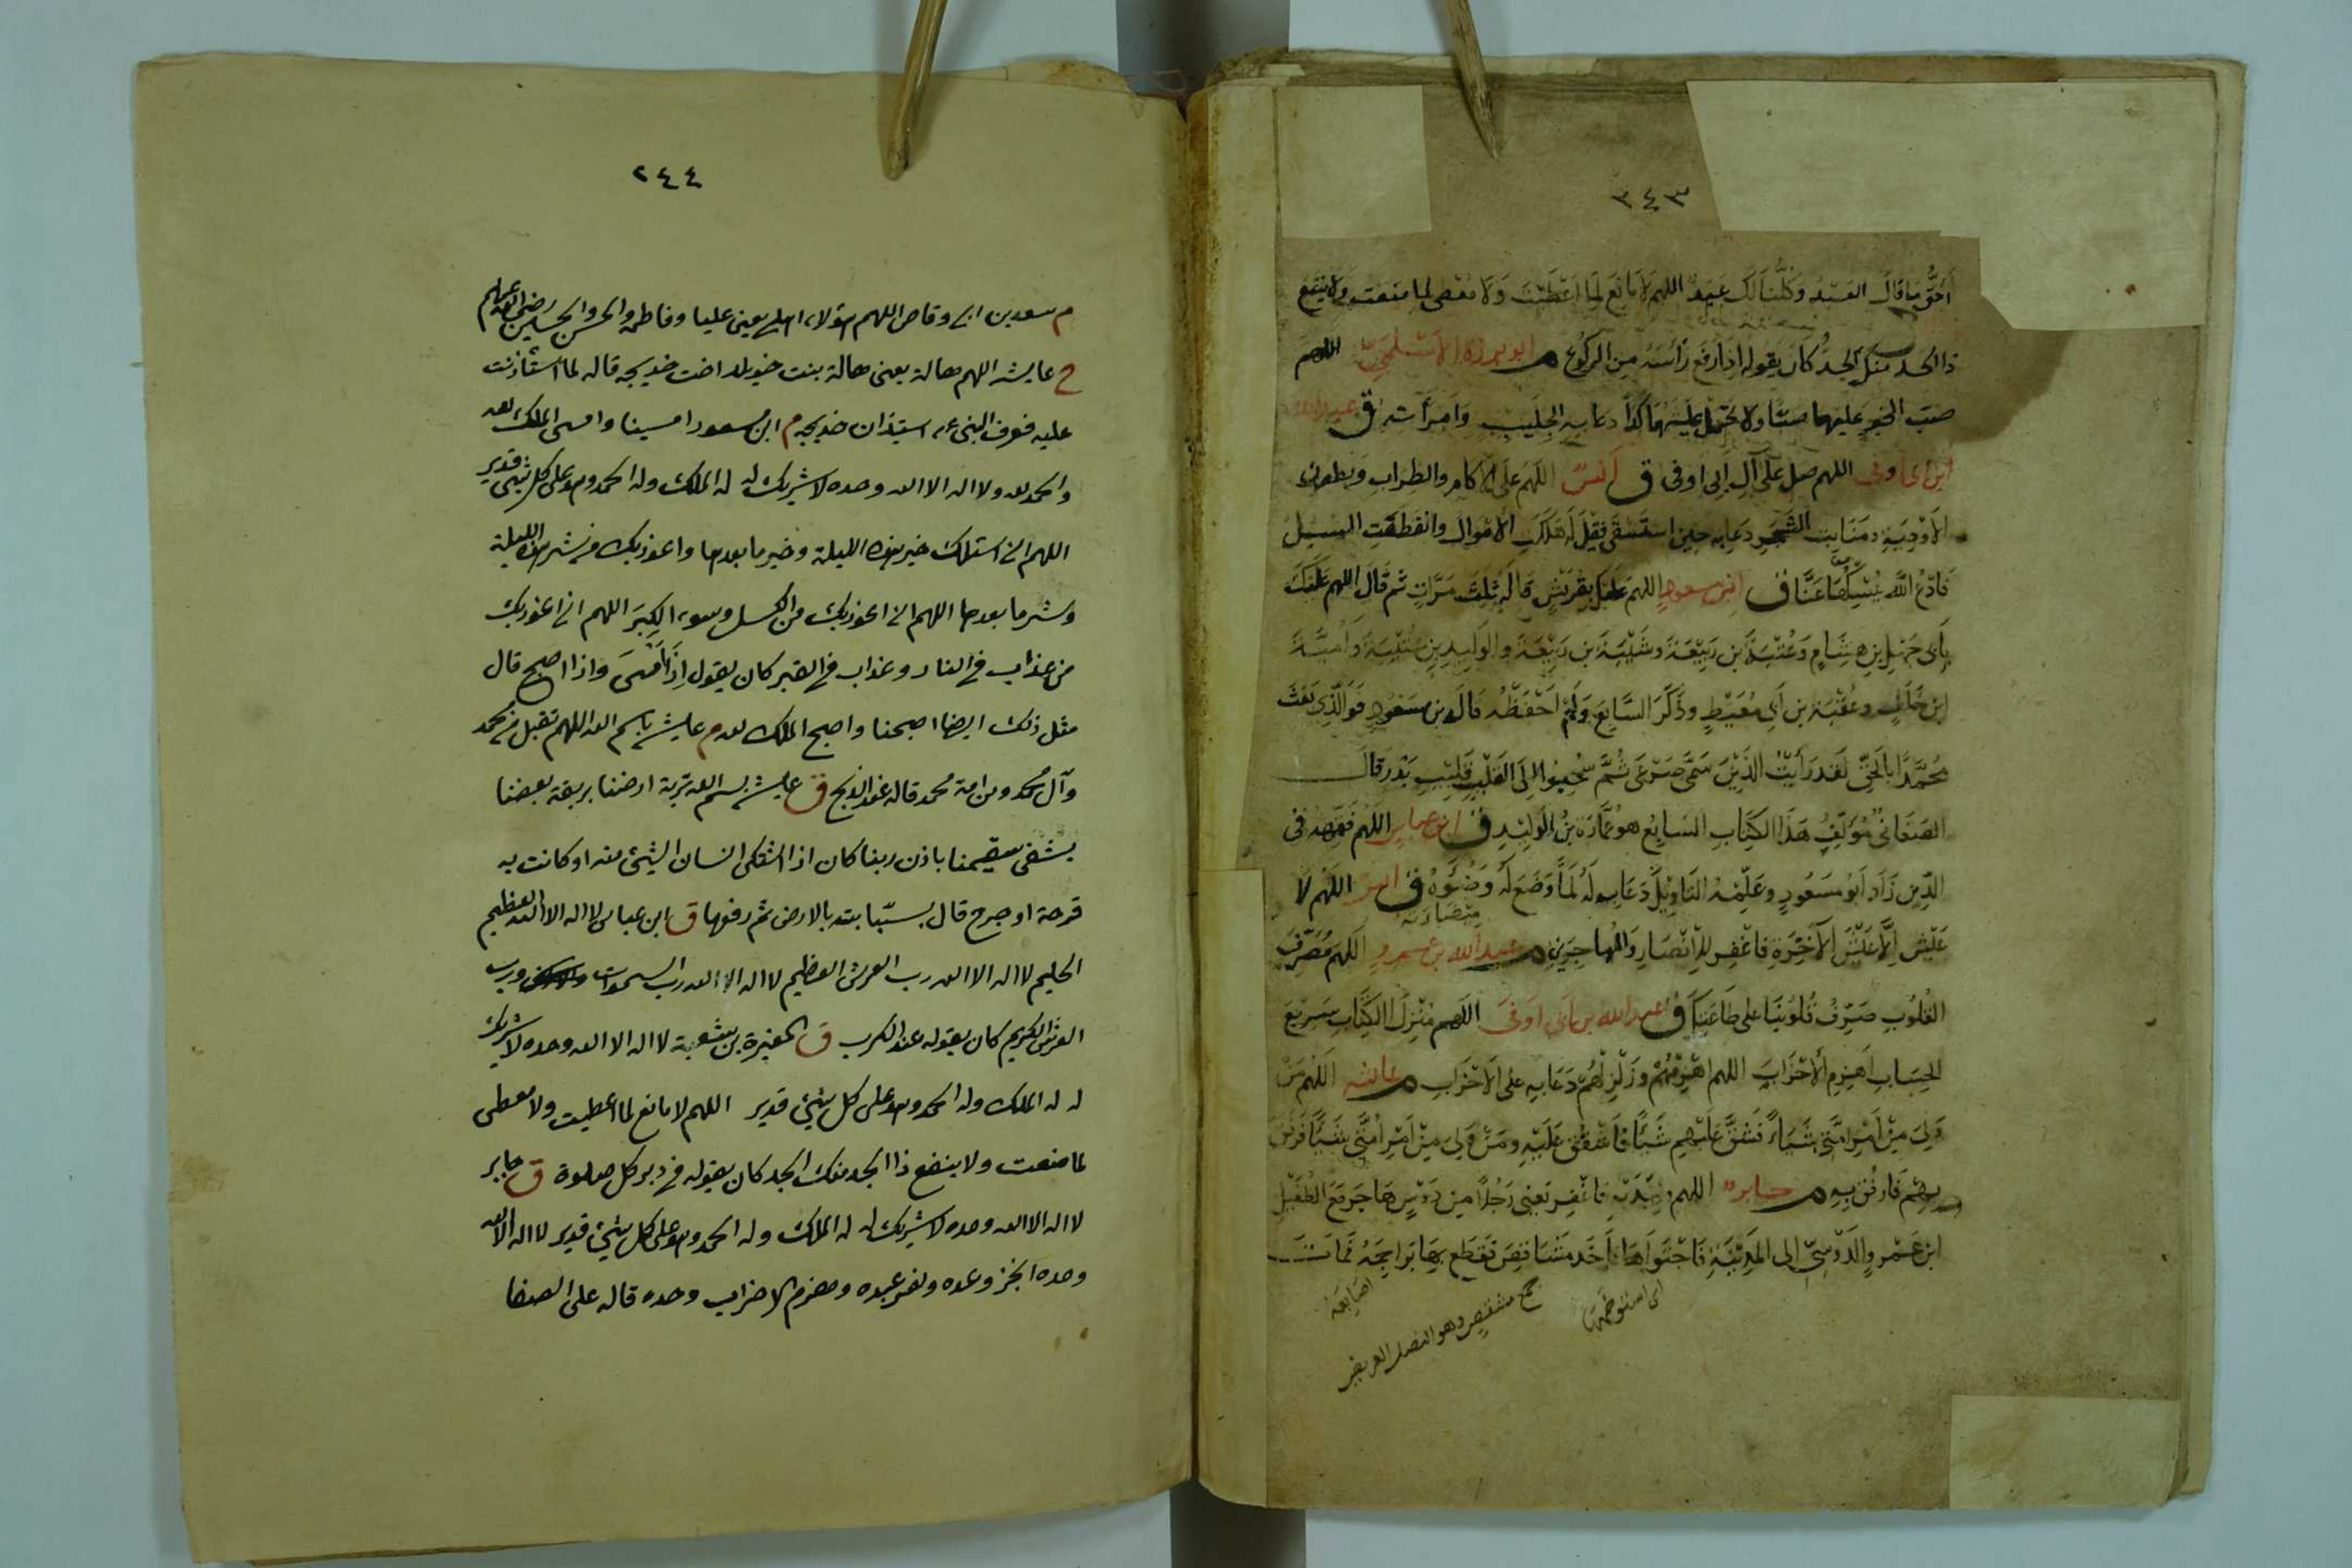 ٣٤٣
أَحَقُّ مَا قَالَ العَبْدُ وَكُلُّنَا لَكَ عَبْدٌ اللهم لَا مَانِعَ لِمَا اَعْطَيْتَ وَلَا مُعْطِيَ لِمَا مَنَعْتَ وَلَا يَنْفَعُ
ذا الجد مِنْكَ الجَدُّ كَانَ يَقُولُه اِذَا رَفَعَ رَأْسَهُ مِنَ الرُّكُوعِ م ابو برزة الاَسْلَمِيّ اللهم
صب الخير عَلَيهما صبّا ولا تجعل عَيْشَهُمَا كَدًّا دعا به لجليبيب وَامرَأته ق عبد الله
ابن ابى اوفى اللهم صل عَلَى آلِ اَبِى اَوفى ق اَنَسٌ اللهم عَلَى الاكام والظِرَابِ وَبُطُونِ
الاَوْدِيَةِ وَمَنَابِتِ الشَّجَرِ دعَا به حِين استَسْقَى فقِيْلَ لَه هَلَكَت الاَمْوَالُ وانقَطَعَتِ السبيل
فَادْعُ اللهَ يُمْسِكْهَا عَنَّا ق ابن مسعودٍ اللهم عَلَيْكَ بِقُرَيْشٍ قَالَه ثَلثَ مَرَّاتٍ ثم قَالَ اللهم عَلَيْكَ
بِاَبِى جَهْلِ بنِ هِشَامٍ وَعُتْبَةَ بن رَبِيْعَةَ وشَيْبَةَ بن رَبِيْعَةَ والوَلِيدِ بنِ عُتْبَةَ وَاُمَيَّةَ
ابن خَلَفٍ وعُقْبَةَ بن اَبِى مُعَيْطٍ وذَكَرَ السَّابِعَ وَلَمْ اَحْفَظْهُ قَالَ بن مَسْعُودٍ فَوَالَّذِى بَعَثَ
مُحَمَّدًا بِالحَقِّ لَقَد رَأَيْتُ الَّذِيْنَ سَمَّى صَرْعَى ثُمَّ سُحِبُوا اِلَى القَلِيْبِ قَلِيْبِ بَدْرٍ قَالَ
الصَّغَانِى مُؤَلِّفُ هَذَا الكِتَابِ السَّابِعُ هو عُمَارَة بْنُ الوَلِيْدِ ق ابن عباس اللهم فَقِّهْهُ فى
الدِّيْنِ زَادَ اَبُو مَسْعُودٍ وعَلِّمْهُ التَّاوِيْلَ دَعَا به لَهُ لَمَّا وَضَعَ لَهُ وَضُوْءَهُ ق انس اللهم لَا
عَيْشَ اِلَّا عَيْشَ الآخِرَةِ فَاغْفِر لِلاَنْصَارِ وَالمُهَاجِرِيْنَ م عبد الله بن عمرو اللهم مُصَرِّفَ
القُلُوبِ صَرِّفْ قُلُوبَنَا عَلَى طَاعَتِكَ ق عبد الله بن اَبى اَوفَى اللهم مُنْزِلَ الكِتَابِ سَرِيْعَ
الحِسَابِ اهزِمِ الاَحْزَابَ اللهم اهْزِمْهُمْ وَزَلْزِلْهُمْ دَعَا بِهِ عَلَى الاَحْزَابِ م عائشه اَللهم مَنْ
وَلِيَ مِنْ اَمْرِ اُمَّتِى شَيْأً فَشَقَّ عَلَيْهِم فَاشْقُقْ عَلَيْهِ ومَنْ وَلِيَ مِنْ اَمْرِ اُمَّتِى شَيْأً فَرَفَقَ
بِهِم فَارفُقْ بِهِ م جابرٌ اللهم وَلِيَدَيْهِ فَاغْفِر يَعنِى رَجُلاً مِن دَوْسٍ هَاجَرَ مَعَ الطُّفَيْلِ
ابن عَمْرو الدَّوْسِيّ الى المَدِيْنَةِ فَاجْتَوَاهَا فاَخَذ مَشَاقِصَ فَقَطَعَ بِهَا بَرَاجِمَهُ فَمَاتَ
اى استوخمها
جمع مشقص وهو النصل العريض
اصابعه
٢٤٤
م سعد بن ابى وقاص اللهم هؤلاء اهلى يعنى عليا وفاطمة والحسن والحسين رضى الله عنهم
خ عايشه اللهم هالة يعنى هالة بنت خويلد اخت خديجه قاله لما استأذنت
عليه فعرف النبى عم استيذان خديجه م ابن مسعود امسينا وامسى الملك لله
والحمد لله ولا اله الا الله وحده لا شريك له له الملك وله الحمد وهو على كل شئ قدير
اللهم انى اسئلك خير هذه الليلة وخير ما بعدها واعوذ بك من شر هذه الليلة
وشر ما بعدها اللهم انى اعوذ بك من الكسل وسوء الكِبَر اللهم انى اعوذ بك
من عذاب فى النار وعذاب فى القبر كان يقوله اِذَا اَمْسَى واذا اصبح قال
مثل ذلك ايضا اصبحنا واصبح الملك لله م عايشه باسم الله اللهم تقبل من محمد
وآل محمد ومن امة محمد قاله عند الذبح ق عايشه بسم الله تربة ارضنا بريقة بعضنا
يشفى سقيمنا باذن ربنا كان اذا اشتكى انسان الشئ منه او كانت به
قرحة او جرح قال بسبّابته بالارض ثم رفعها ق ابن عباس لا اله الا الله العظيم
الحليم لا اله الا الله رب العرش العظيم لا اله الا الله رب السموات ورب
العرش الكريم كان يقوله عند الكرب ق المغيرة بن شعبة لا اله الا الله وحده لا شريك
له له الملك وله الحمد وهو على كل شئ قدير اللهم لا مانع لما اعطيت ولا معطى
لما منعت ولا ينفع ذا الجد منك الجد كان يقوله فى دبر كل صلوة ق جابر
لا اله الا الله وحده لا شريك له له الملك وله الحمد وهو على كل شئ قدير لا اله الا الله
وحده انجز وعده ونصر عبده وهزم الاحزاب وحده قاله على الصفا